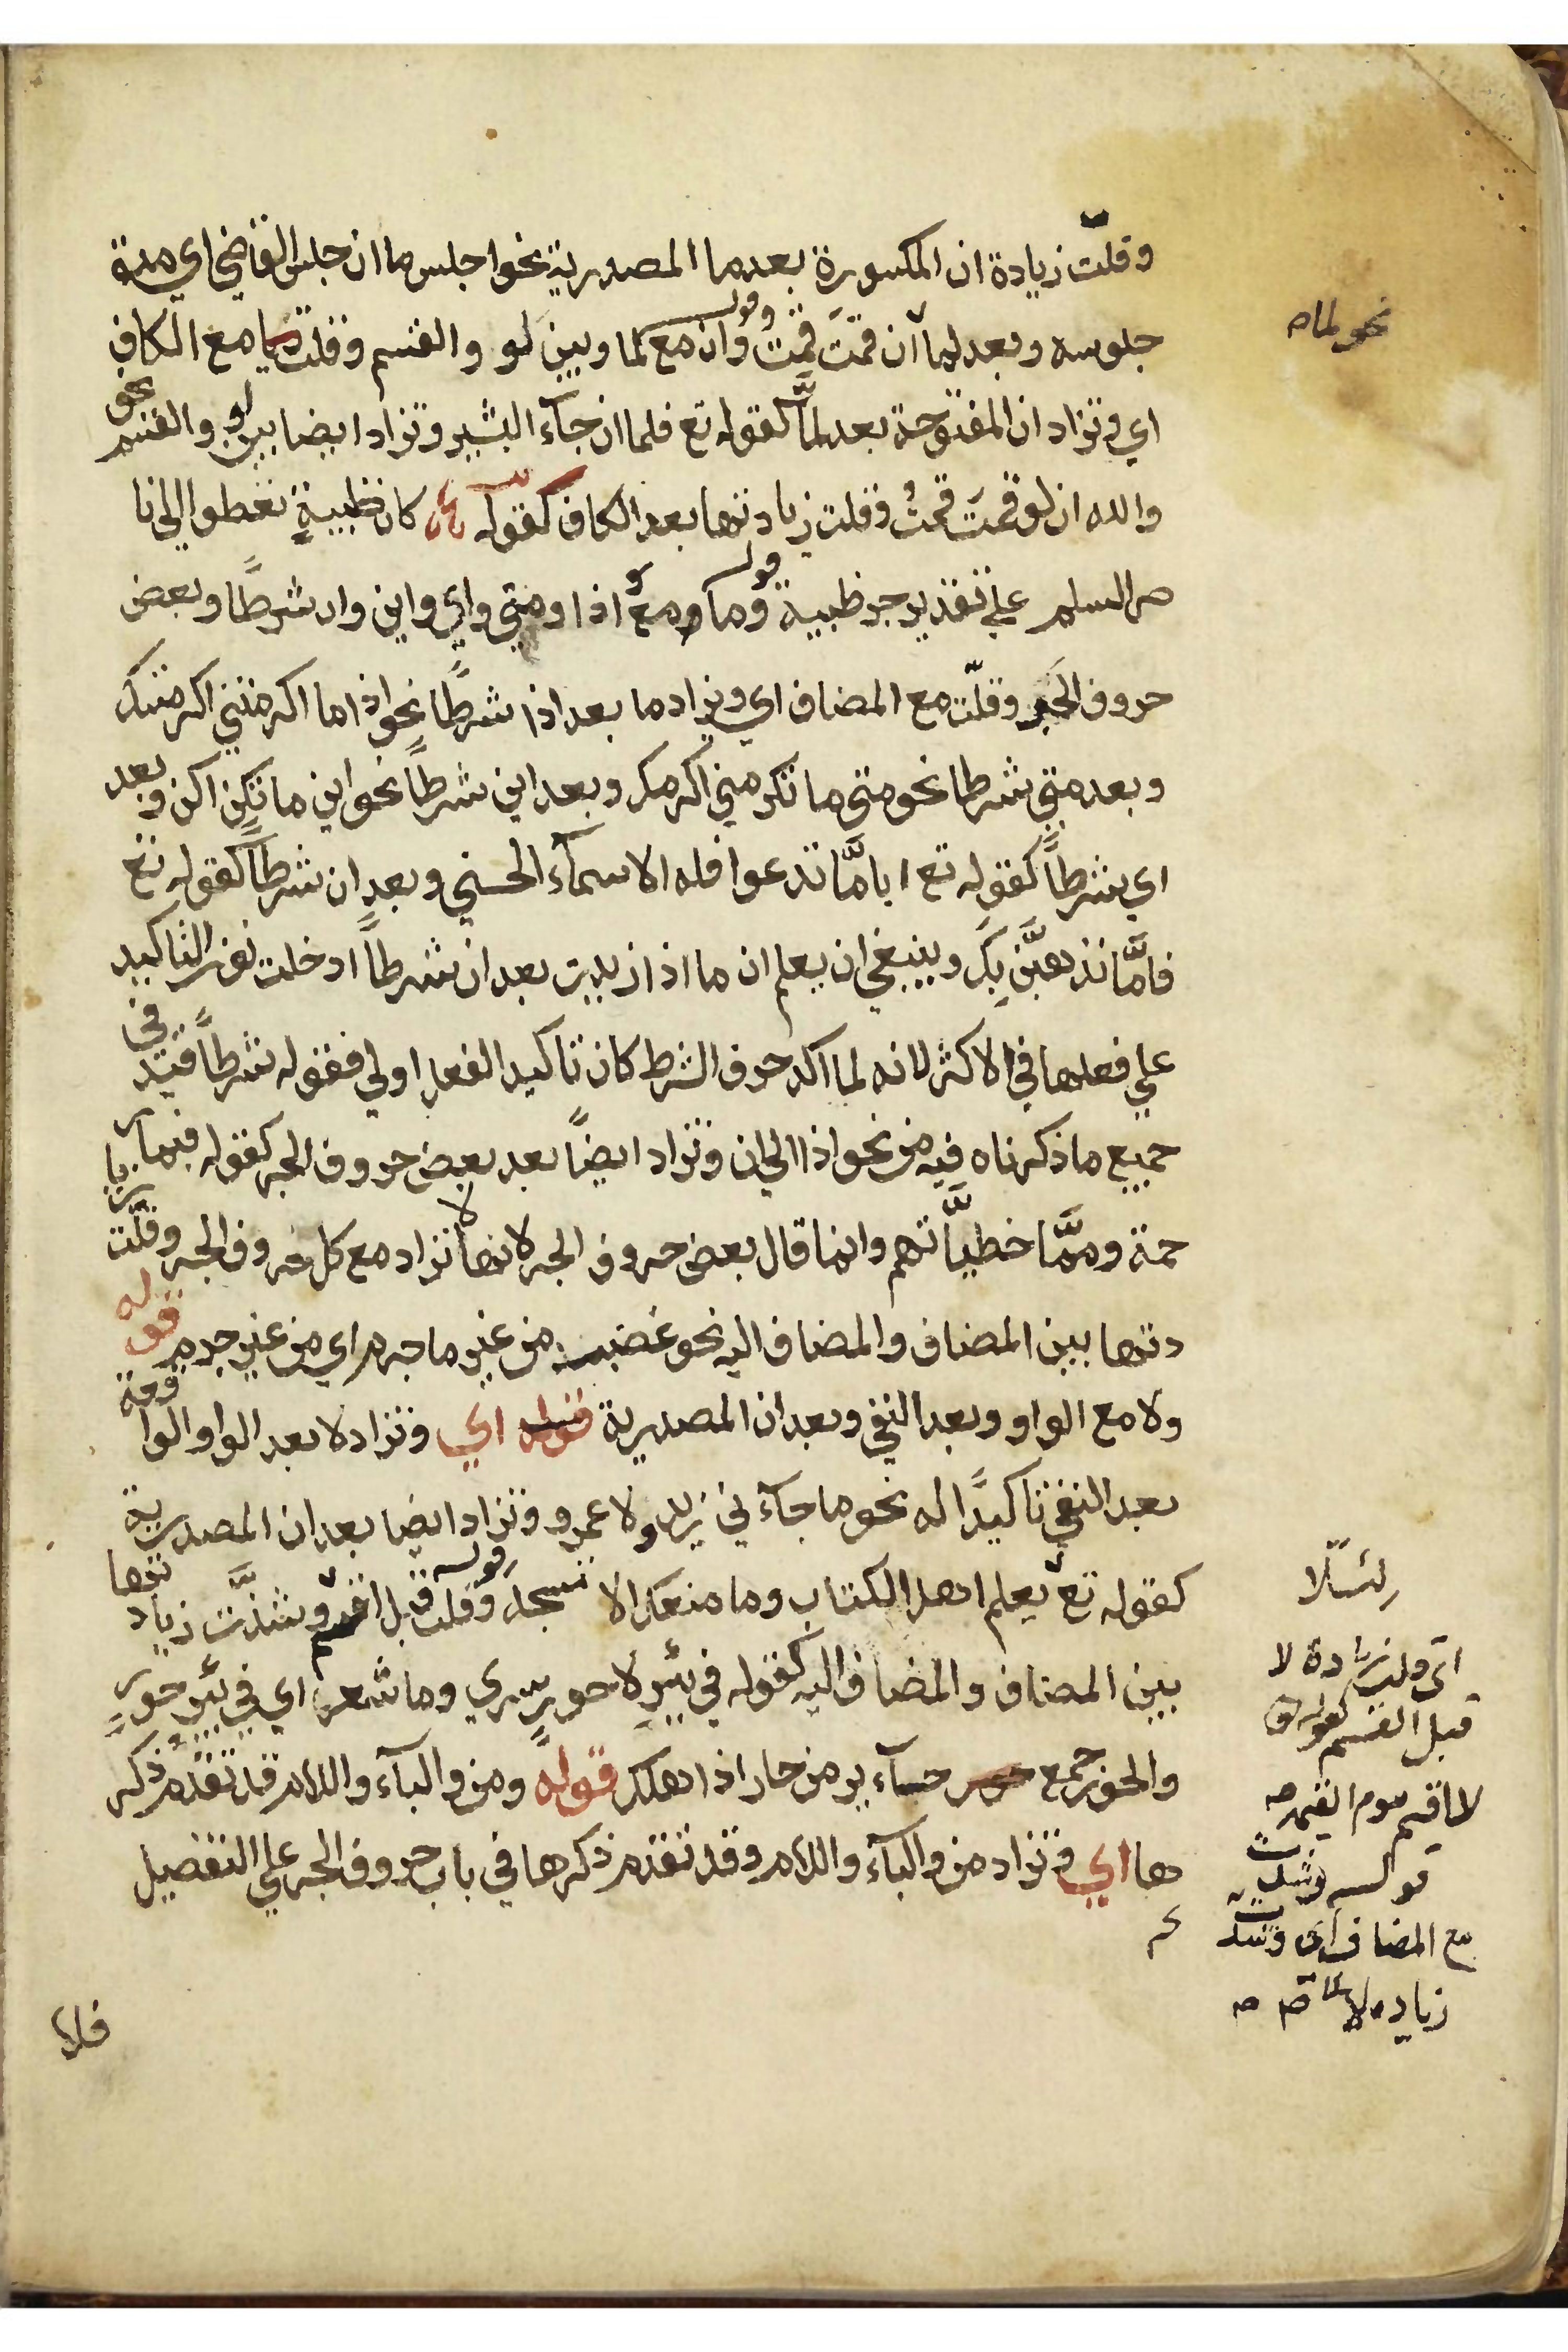 وقلّت زيادة ان المكسورة بعد ما المصدرية نحوا جلس ما ان جلس القاضي اي مدة
جلوسه وبعد لما ان قمتَ قمتُ وقوله وان مع لما وبين لو والقسم وقلت مع الكاف
نحو لما
اي وتزاد ان المفتوحة بعد لمّا كقوله تع فلما ان جآء البشير وتزاد ايضا بين لو والقسم نحو
والله ان لو قمتَ قمتُ وقلت زيادتها بعد الكاف كقوله كان ظبيةٍ تعطوا الى نا
ضر السلم على تقدير جر ظبية قوله وما مع اذا ومتى واي واين وان شرطًا وبعض
حروف الجر وقلّت مع المضاف اي وتزاد ما بعد اذا شرطًا نحو اذا ما اكرمتني اكرمتك
وبعد متى شرطا نحو متى ما تكرمني اكرمك وبعد اين شرطًا نحو اين ما تكن اكن وبعد
اي شرطًا كقوله تع اياما تدعوا فله الاسمآء الحسنى وبعد ان شرطًا كقوله تع
فامّا نذهبَّن بِكَ وينبغي ان يعلم ان ما اذا زيدت بعد ان شرطًا ادخلت نون التاكيد
على فعلها في الاكثر لانه لما اكد حرف الشرط كان تاكيد الفعل اولى فقوله شرطًا قيد في
جميع ما ذكرناه فيه من نحو اذا الى ان وتزاد ايضًا بعد بعض حروف الجر كقوله فبما ر
حمة وممّا خطيّاتهم وانما قال بعض حروف الجر لانها لا تزاد مع كل حروف الجر وقلّت زيا
دتها بين المضاف والمضاف اليه نحو غضبت من غير ما جرم اي من غير جرم قوله
ولا مع الواو وبعد النفي وبعد ان المصدرية اي وتزاد لا بعد الواو الوا قعة
بعد النفي تاكيدًا له نحو ما جآء ني زيد ولا عمرو وتزاد ايضا بعد ان المصدرية
كقوله تع يعلم اهل الكتاب وما منعك الا تسجد قوله وقلت قبل اقسم وشذّت زياد تها
لئلّا
بين المضاف والمضاف اليه كقوله في بئرِ لا حورٍ سري وما شعر اي في بئر حورٍ
اي وقلت زيادة لا
قبل القسم كقوله تع
والحور جمع حآء ير من حار اذا هلك قوله ومن والبآء واللام قد تقدم ذكر
لا اقسم بيوم القيمه
ها اي وتزاد من والبآء واللام وقد تقدم ذكرها في باب حروف الجر على التفصيل
قوله وشذت
مع المضاف اي وشذت
زياده لا
فلا